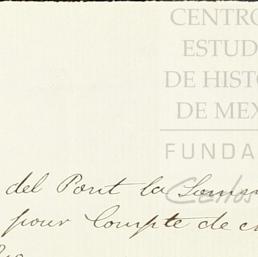 CENTRO
ESTUD
DE HISTO
DE MEX
FUNDA
Carlos
del Pont la Somm
pour Compte de c